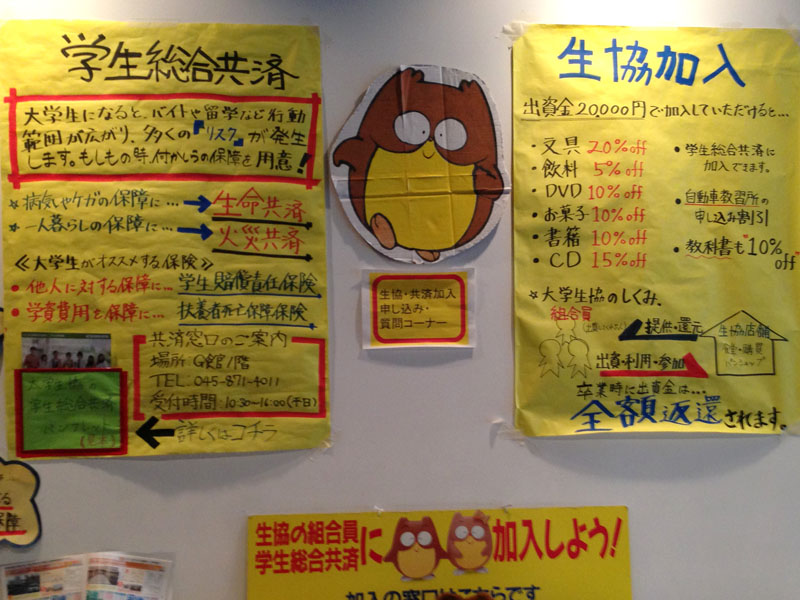 学生総合共済
大学生になると、バイトや留学など行動
範囲が広がり、多くの『リスク』が発生
します。もしもの時、付かしらの保障を用意!
☆病気やケガの保障に…→生命共済
☆一人暮らしの保障に…→火災共済
≪大学生がオススメする保険≫
・他人に対する保障に…学生賠償責任保険
・学資費用を保障に…扶養者死亡保障保険
共済窓口のご案内
場所:G館1階
TEL:045-871-4011
受付時間:10:30~16:00(平日)
大学生協と
学生総合共済
パンフレット
(見本)
←詳しくはコチラ
生協・共済加入
申し込み・
質問コーナー
生協加入
出資金20,000円で加入していただけると…
・文具 20%off
・飲料 5%off
・DVD 10%off
・お菓子 10%off
・書籍 10%off
・CD 15%off
・学生総合共済に
加入できます。
・自動車教習所の
申し込み割引
・教科書も"10%
off"
☆大学生協のしくみ
組合員
提供・還元
出資・利用・参加
生協店舗
食堂・購買
卒業時に出資金は…
全額返還されます。
生協の組合員
学生総合共済
に加入しよう!
加入の窓口はこちらです